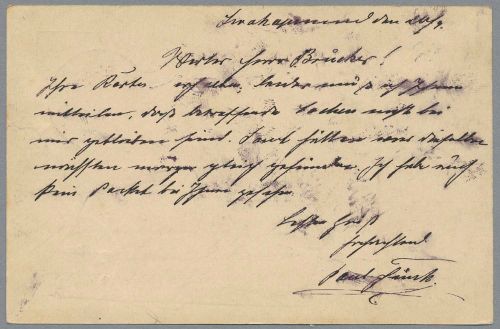 Swakopmund den 20/9.
Werter Herr Brücker!
Ihre Karte erhalten, leider muß ich Ihnen
mitteilen, daß betreffende Sachen nicht bei
mir geblieben sind. Sonst hätten wir dieselben
am morgen gleich gefunden. Ich habe auch
kein Packet bei Ihnen gesehen.
Besten Gruß
Paul